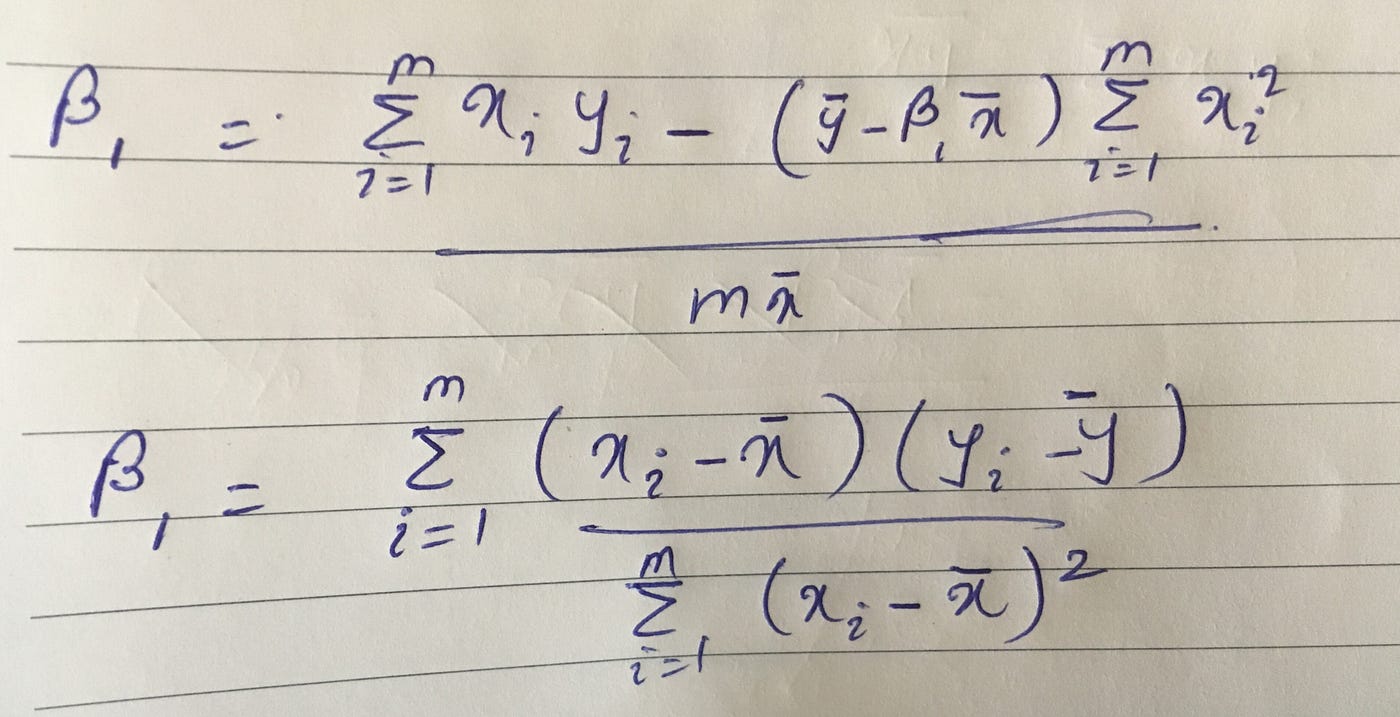 β₁ = (∑_{i=1}^{m} x_i y_i − (ȳ − β₁ x̄) ∑_{i=1}^{m} x_i²) / (m x̄)
β₁ = ∑_{i=1}^{m} (x_i − x̄)(y_i − ȳ) / ∑_{i=1}^{m} (x_i − x̄)²